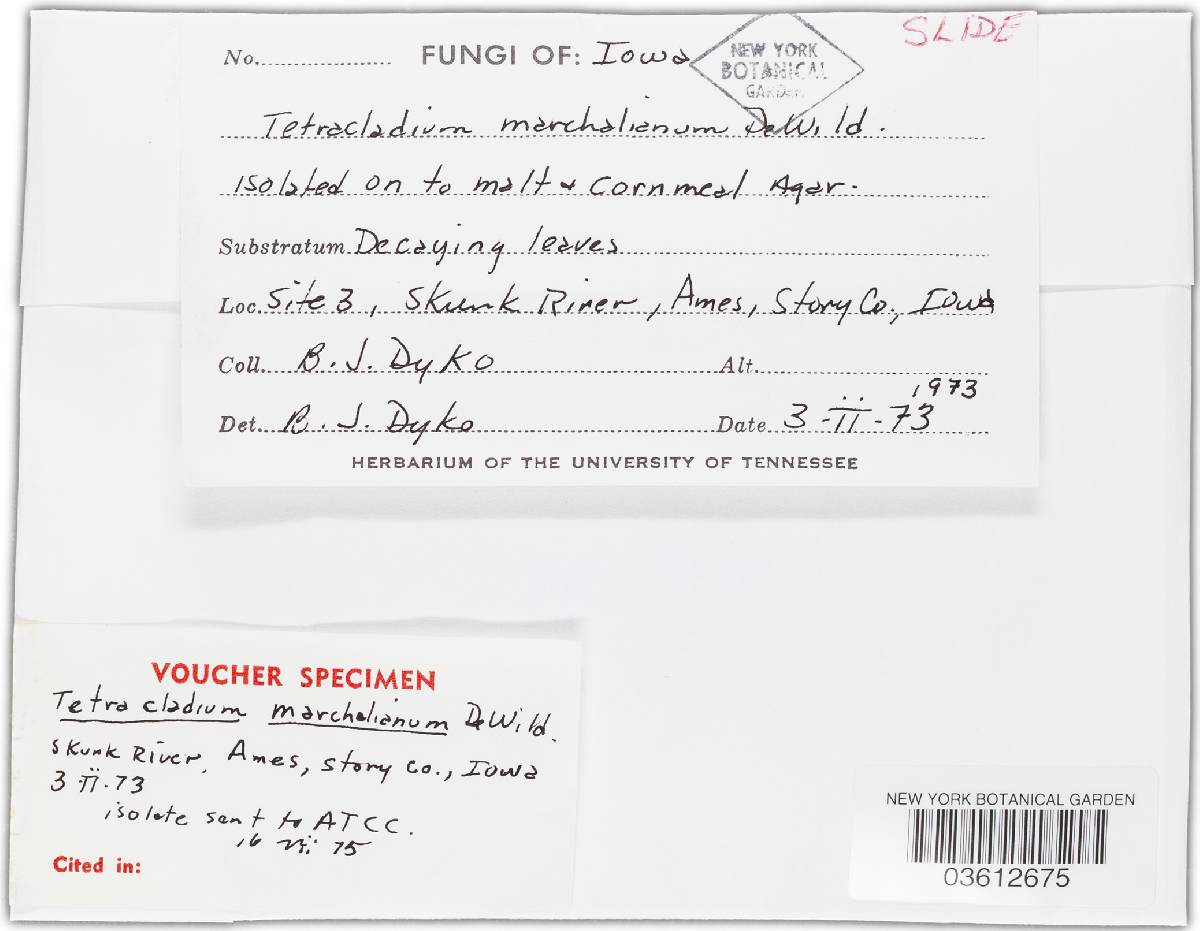 SLIDE
No. FUNGI OF: Iowa
NEW YORK
BOTANICAL
GARDEN
Tetracladium marchalianum DeWild.
isolated on to malt + cornmeal Agar.
Substratum Decaying leaves
Loc. Site 3, Skunk River, Ames, Story Co., Iowa
Coll. B. J. Dyko Alt.
1973
Det. B. J. Dyko Date 3-II-73
HERBARIUM OF THE UNIVERSITY OF TENNESSEE
VOUCHER SPECIMEN
Tetracladium marchalianum DeWild.
Skunk River, Ames, Story Co., Iowa
3 II.73
isolate sent to ATCC.
16 vii 75
Cited in:
NEW YORK BOTANICAL GARDEN
03612675